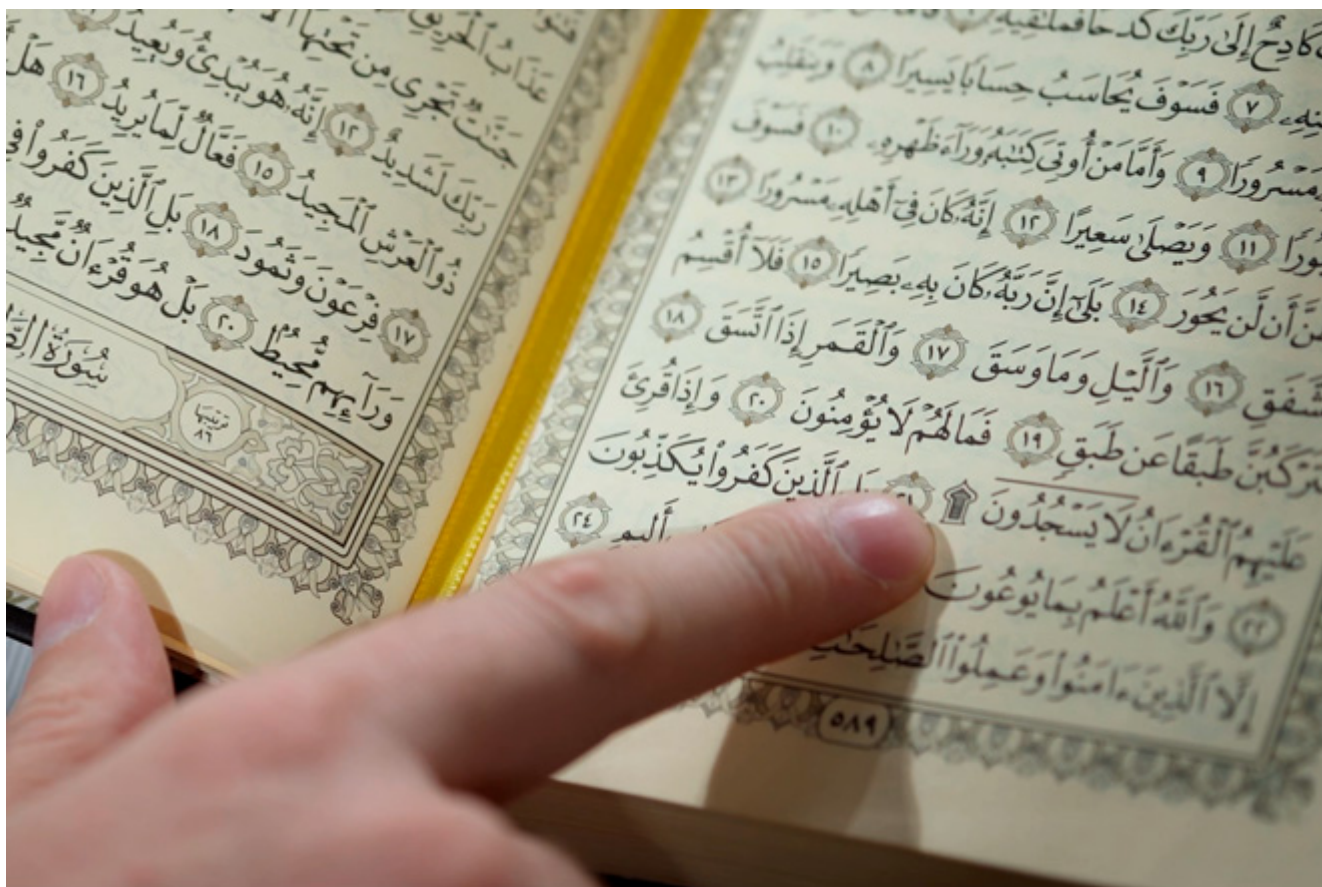 كَادِحٌ إِلَىٰ رَبِّكَ كَدْحًا فَمُلَٰقِيهِ
فَسَوْفَ يُحَاسَبُ حِسَابًا يَسِيرًا ٨ وَيَنقَلِبُ
مَسْرُورًا ٩ وَأَمَّا مَنْ أُوتِيَ كِتَٰبَهُۥ وَرَآءَ ظَهْرِهِۦ ١٠ فَسَوْفَ
١١ وَيَصْلَىٰ سَعِيرًا ١٢ إِنَّهُۥ كَانَ فِىٓ أَهْلِهِۦ مَسْرُورًا ١٣
أَن لَّن يَحُورَ ١٤ بَلَىٰٓ إِنَّ رَبَّهُۥ كَانَ بِهِۦ بَصِيرًا ١٥ فَلَآ أُقْسِمُ
شَّفَقِ ١٦ وَٱلَّيْلِ وَمَا وَسَقَ ١٧ وَٱلْقَمَرِ إِذَا ٱتَّسَقَ ١٨
تَرْكَبُنَّ طَبَقًا عَن طَبَقٍ ١٩ فَمَا لَهُمْ لَا يُؤْمِنُونَ ٢٠ وَإِذَا قُرِئَ
عَلَيْهِمُ ٱلْقُرْءَانُ لَا يَسْجُدُونَ ۩ ٱلَّذِينَ كَفَرُوا۟ يُكَذِّبُونَ
٢٢ وَٱللَّهُ أَعْلَمُ بِمَا يُوعُونَ أَلِيمٍ ٢٤
إِلَّا ٱلَّذِينَ ءَامَنُوا۟ وَعَمِلُوا۟ ٱلصَّٰلِحَٰتِ
٥٨٩
عَذَابُ ٱلْحَرِيقِ
جَنَّٰتٌ تَجْرِى مِن تَحْتِهَا
رَبِّكَ لَشَدِيدٌ ١٢ إِنَّهُۥ هُوَ يُبْدِئُ وَيُعِيدُ
ذُو ٱلْعَرْشِ ٱلْمَجِيدُ ١٥ فَعَّالٌ لِّمَا يُرِيدُ ١٦ هَلْ
١٧ فِرْعَوْنَ وَثَمُودَ ١٨ بَلِ ٱلَّذِينَ كَفَرُوا۟ فِى
وَرَآئِهِم مُّحِيطٌ ٢٠ بَلْ هُوَ قُرْءَانٌ مَّجِيدٌ
ترتيبها ٨٦ سُورَةُ